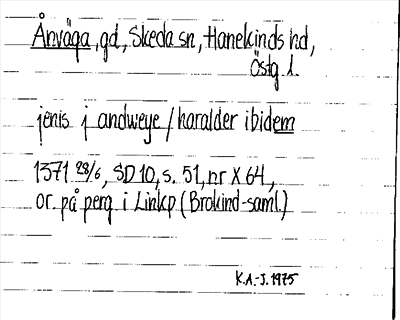 Ånväga, gd, Skeda sn, Hanekinds hd,
Östg l.
jenis j andweye / haralder ibidem
1371 28/6, SD 10, s. 51, nr X 64,
or. på perg i Linkp (Brokind-saml.)
K.A.-J. 1975